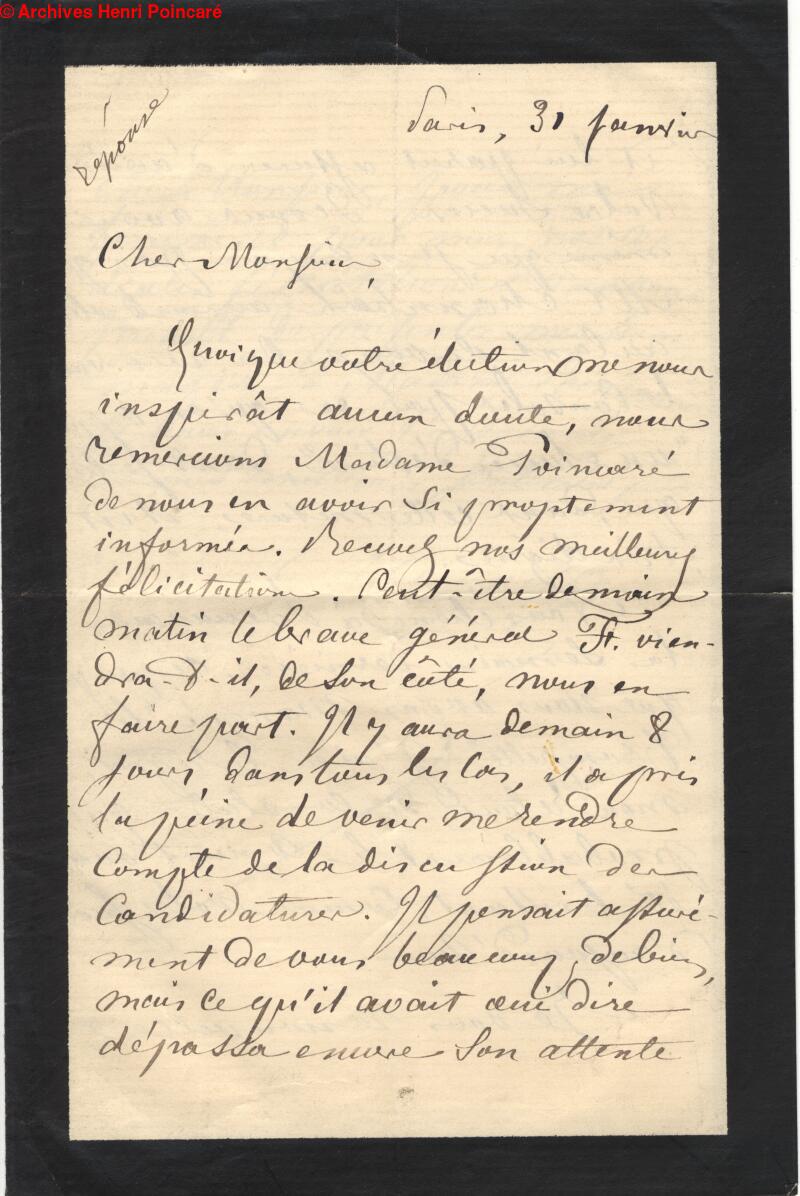 © Archives Henri Poincaré
réponse
Paris, 31 Janvier
Cher Monsieur,
Quoique votre élection ne nous
inspirât aucun doute, nous
remercions Madame Poincaré
de nous en avoir si proptement
informés. Recevez nos meilleures
félicitations. Peut-être demain
matin le brave général Ft. vien-
dra-t-il, de son côté, nous en
faire part. Il y aura demain 8
jours, dans tous les cas, il a pris
la peine de venir me rendre
compte de la discussion des
Candidatures. Il pensait assuré-
ment de vous beaucoup de bien,
mais ce qu'il avait ouï dire
dépassa encore son attente